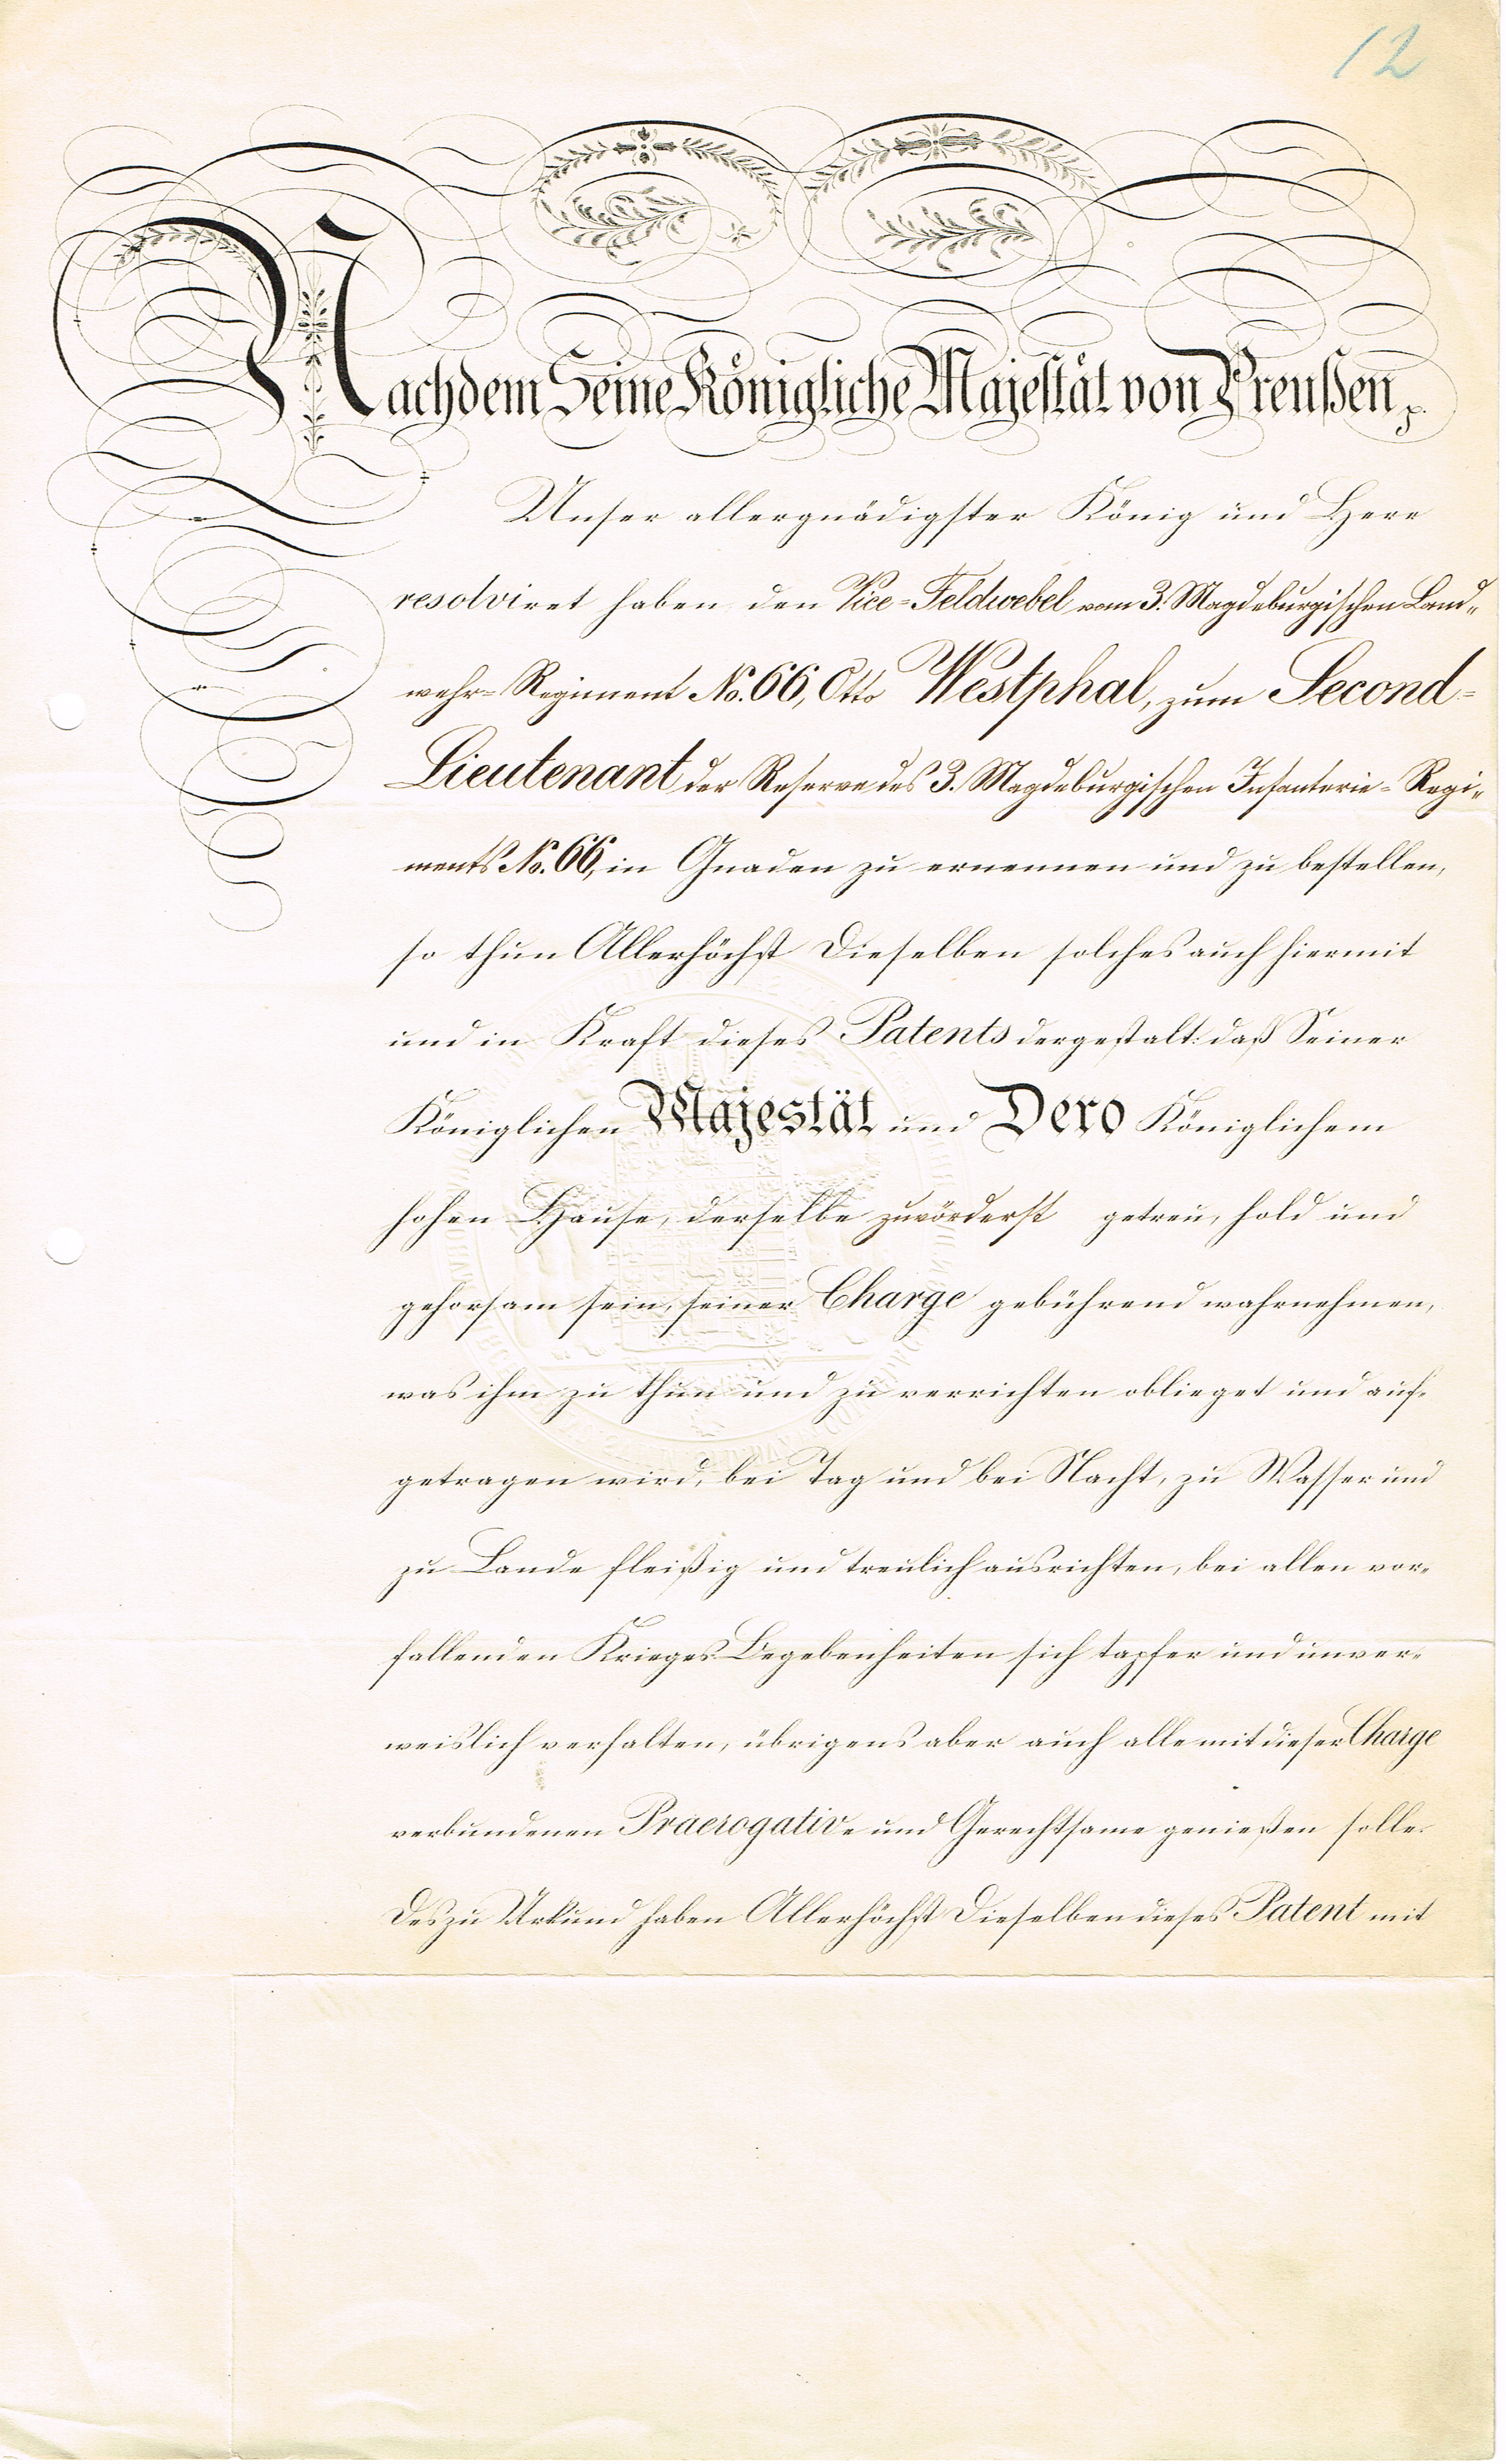 12
Nachdem Seine Königliche Majestät von Preußen p.
Unser allergnädigster König und Herr
resolviret haben den Vice-Feldwebel vom 3. Magdeburgischen Land-
wehr-Regiment No. 66, Otto Westphal, zum Second-
Lieutenant der Reserve des 3. Magdeburgischen Infanterie-Regi-
ments No. 66, in Gnaden zu ernennen und zu bestellen,
so thun Allerhöchst Dieselben solches auch hiermit
und in Kraft dieses Patents dergestalt: daß Seiner
Königlichen Majestät und Dero Königlichem
hohen Hause, derselbe zuvörderst getreu, hold und
gehorsam sein, seiner Charge gebührend wahrnehmen,
was ihm zu thun und zu verrichten oblieget und auf-
getragen wird, bei Tag und bei Nacht, zu Wasser und
zu Lande fleißig und treulich ausrichten, bei allen vor-
fallenden Krieges-Begebenheiten sich tapfer und unver-
weislich verhalten, übrigens aber auch alle mit dieser Charge
verbundenen Praerogative und Gerechtsame genießen solle.
Deszu Urkund haben Allerhöchst Dieselben dieses Patent mit